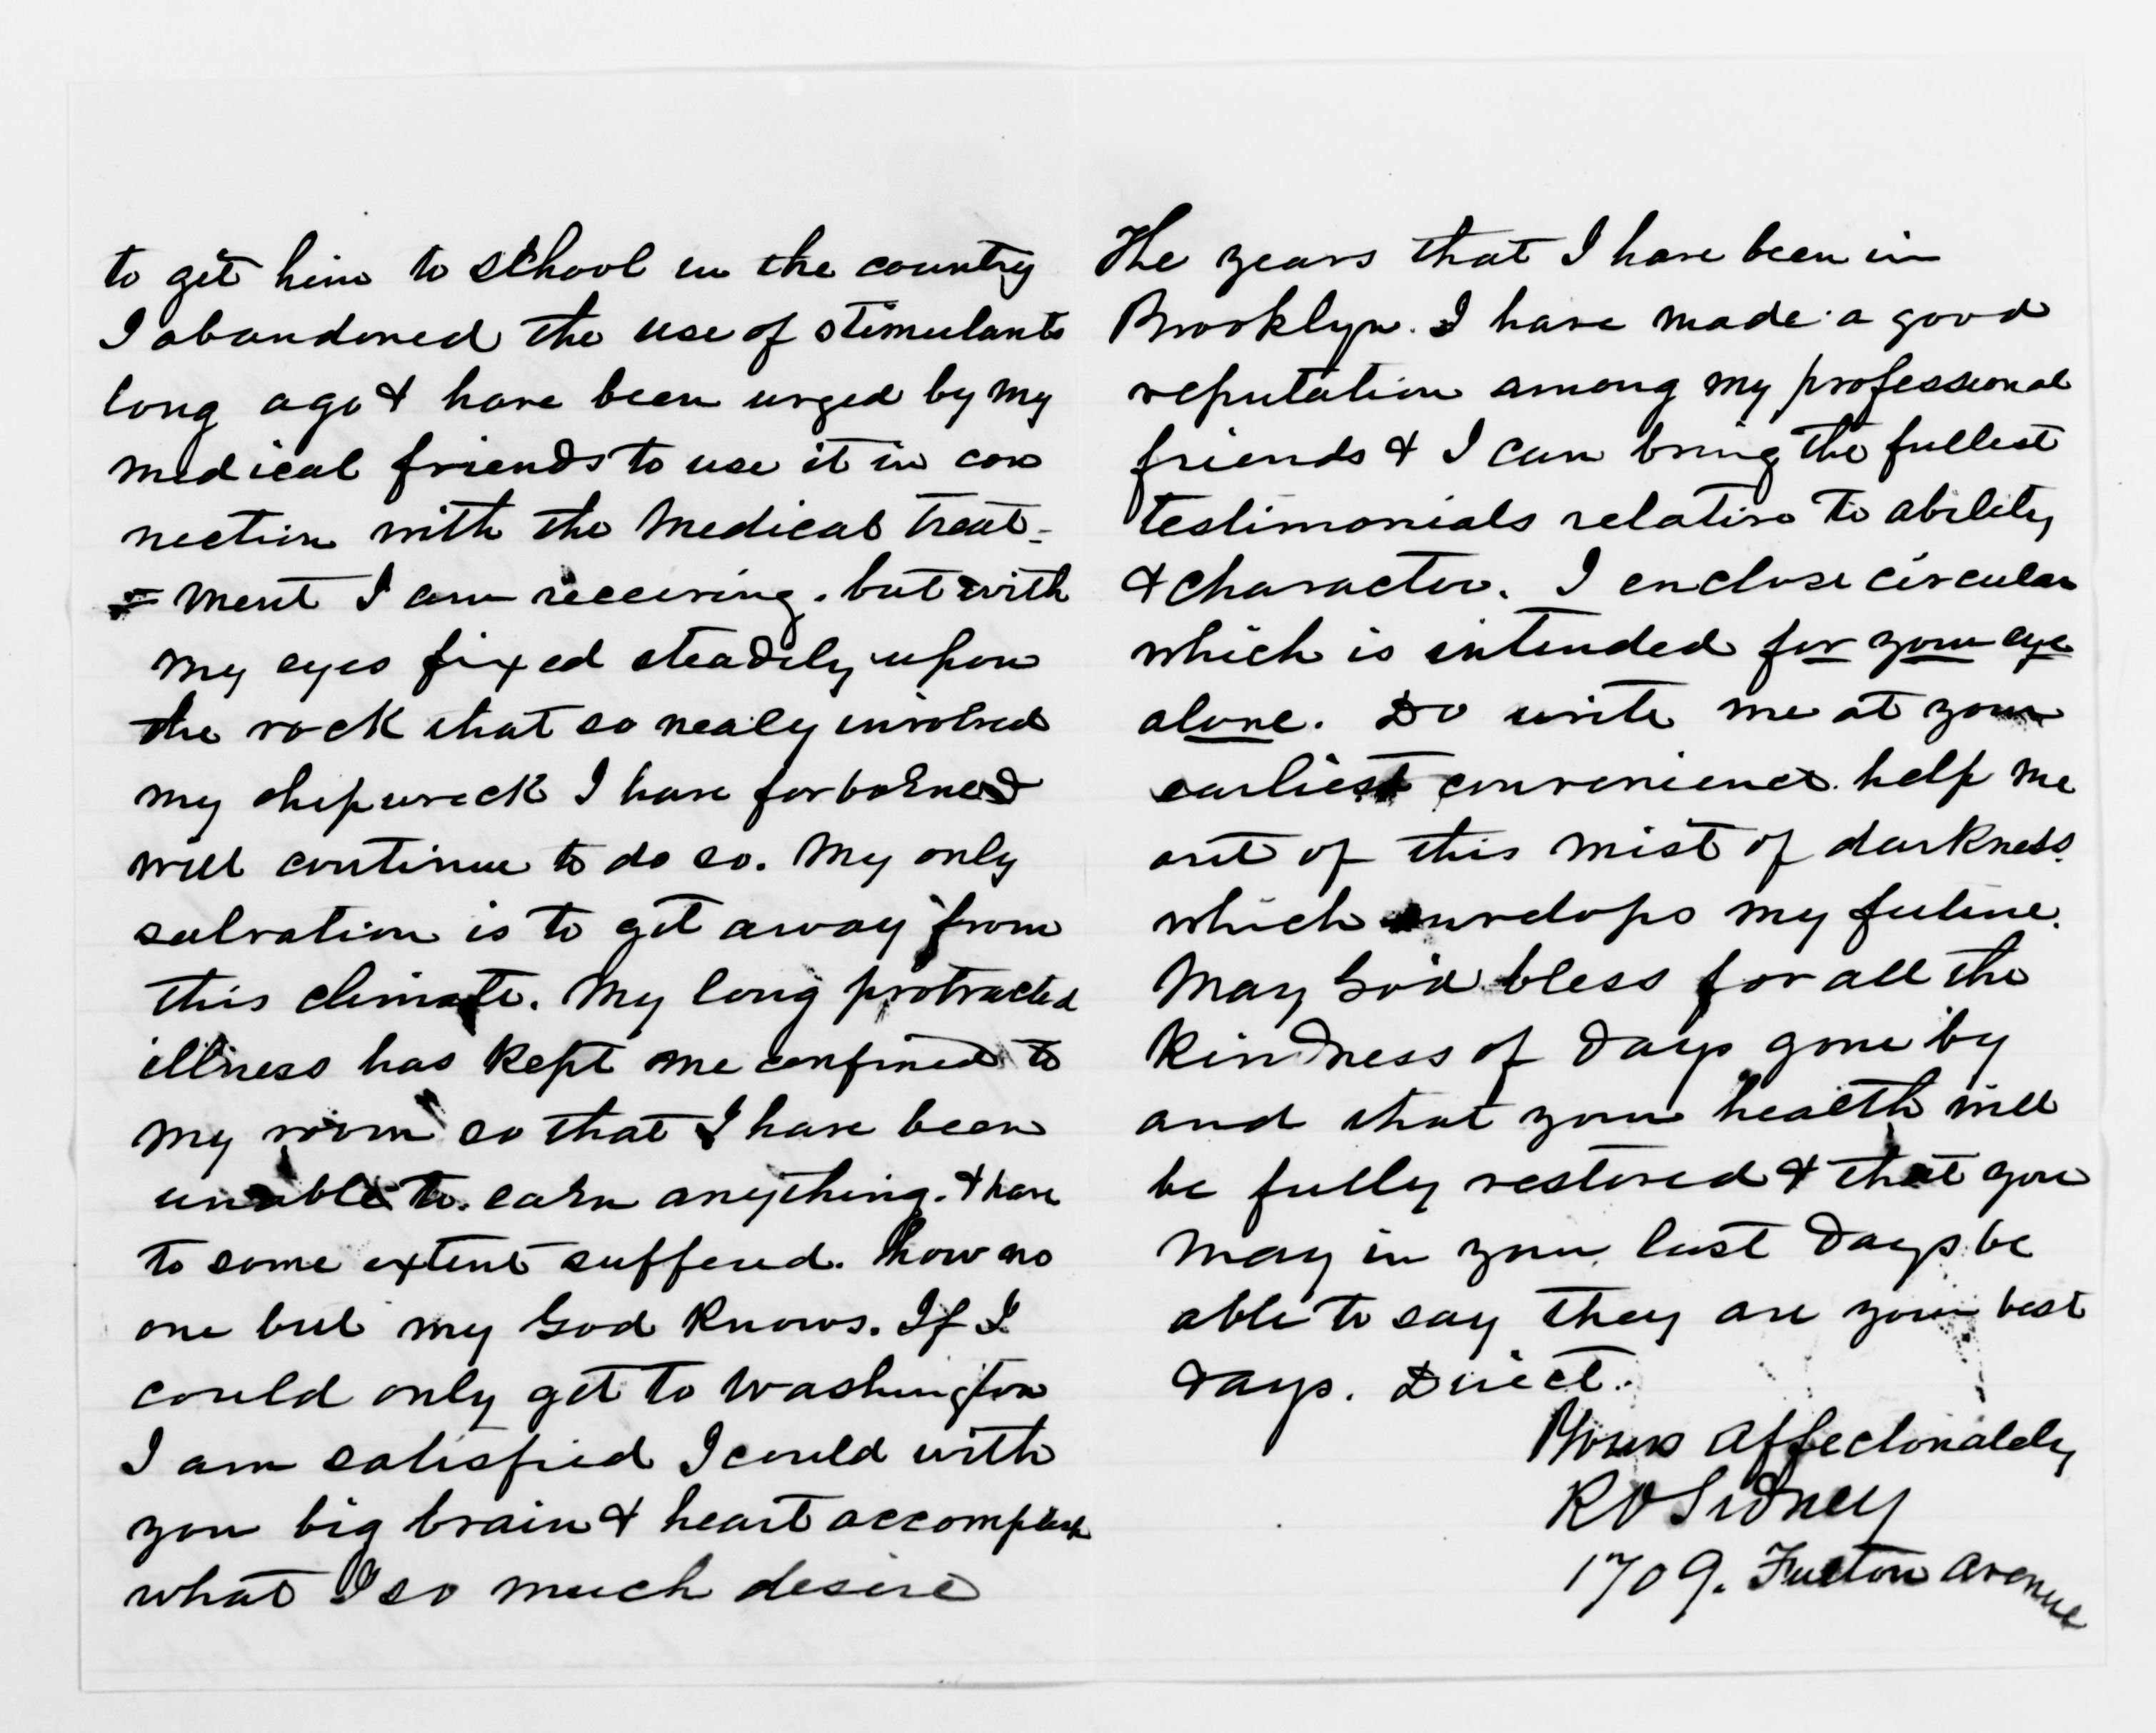 to get him to school in the country
I abandoned the use of stimulants
long ago & have been urged by my
medical friends to use it in con
nection with the Medical treat-
=ment I am receiving. but with
my eyes fixed steadily upon
the rock that so nealy involved
my shipwreck I have forborne &
will continue to do so. My only
salvation is to get away from
this climate. My long protracted
illness has kept me confined to
my room so that I have been
unable to earn anything. & have
to some extent suffered. how no
one but my God knows. If I
could only get to Washington
I am satisfied I could with
you big brain & heart accomplish
what I so much desire
The years that I have been in
Brooklyn. I have made a good
reputation among my professional
friends & I can bring the fullest
testimonials relative to ability
& character. I enclose circular
which is intended for your eye
alone. Do write me at your
earliest convenience. help me
out of this mist of darkness.
which envelops my future.
May God bless for all the
kindness of days gone by
and that your health will
be fully restored & that you
may in your last days be
able to say they are your best
days. Direct.
Yours affectionately
R O Sidney
1709. Fulton Avenue